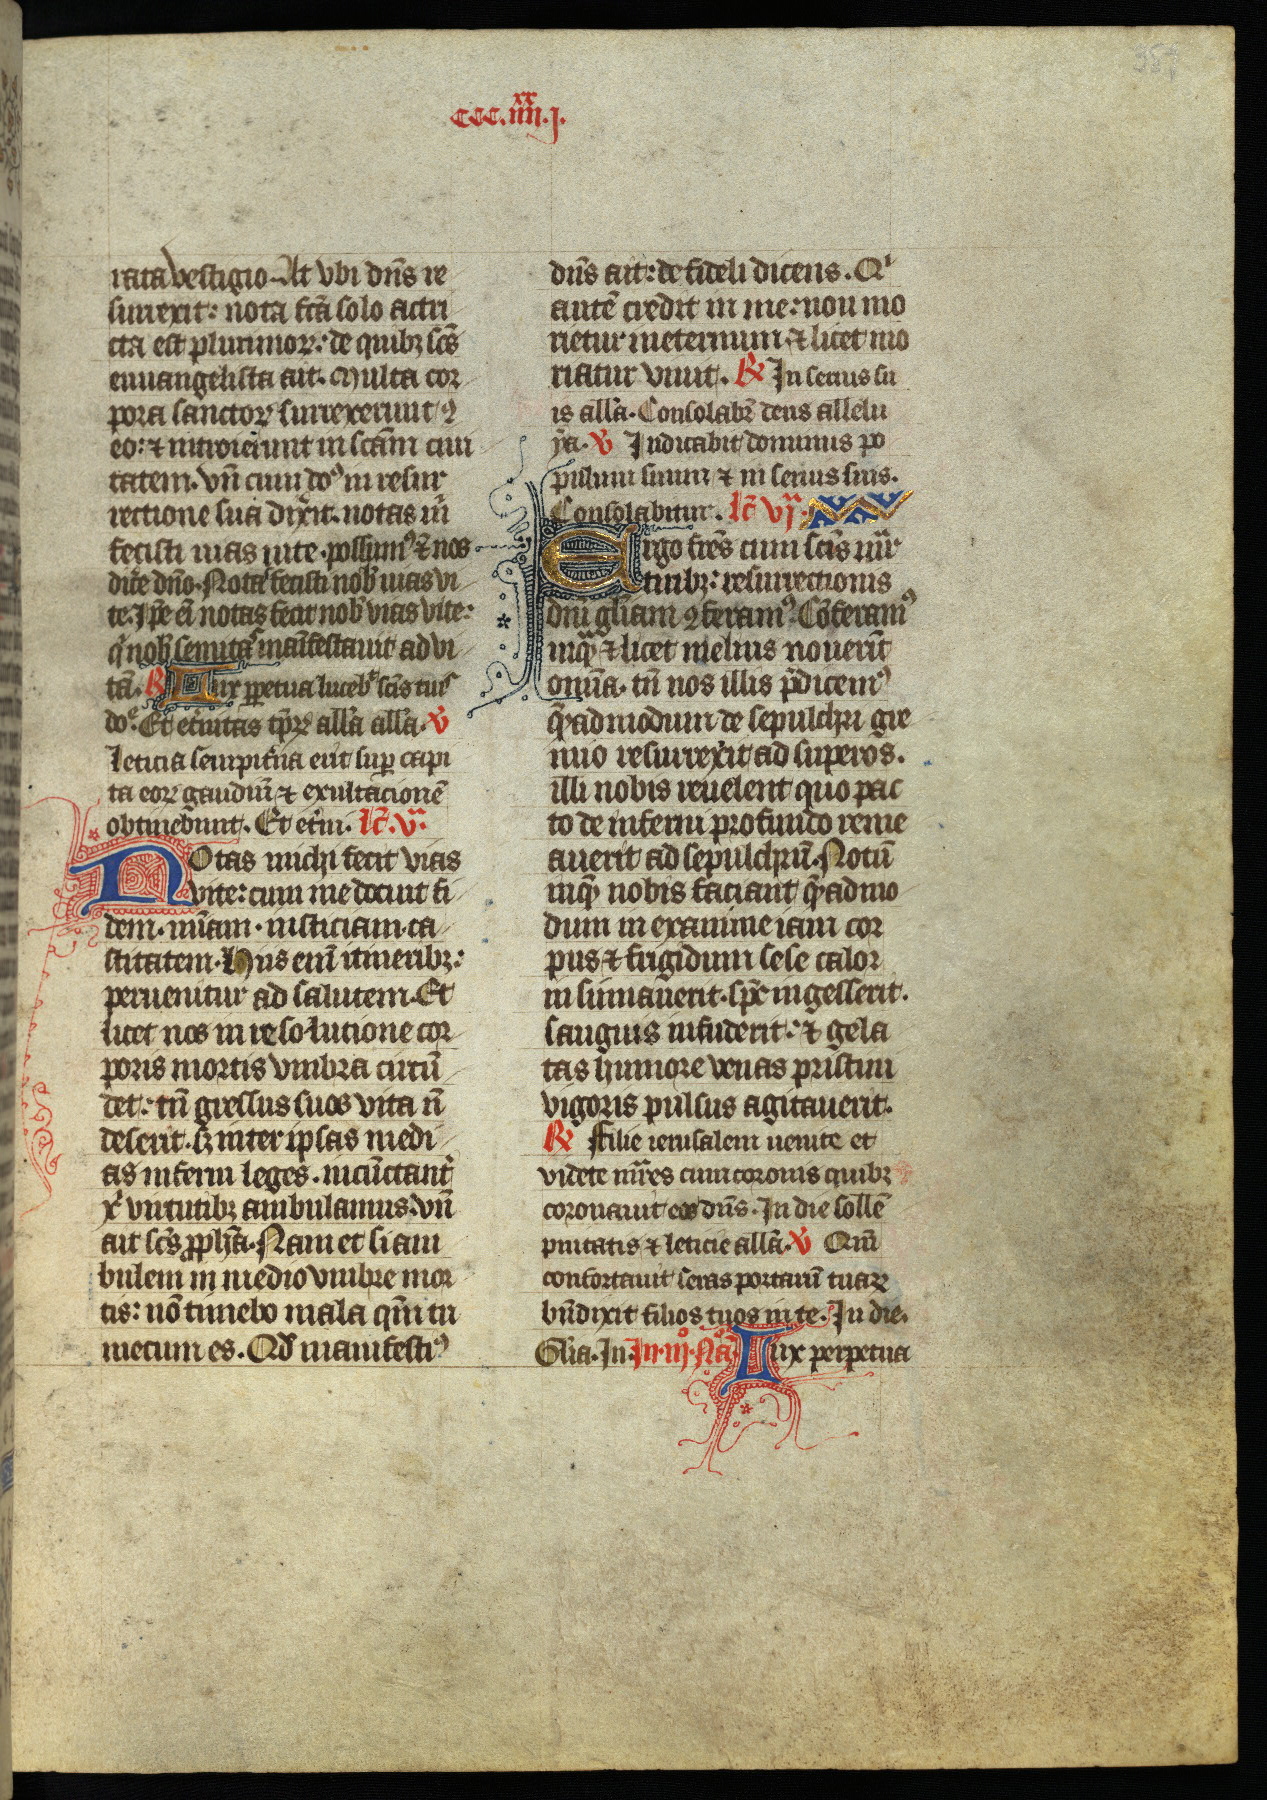 357
CCC.IIII^xx.J.
rata vestigio. At vbi dn̄s re
surrexit: nota fcā solo actri
cta est plurimoꝝ: de quibꝫ scs̄
euuangelista ait. Multa cor
pora sanctoꝝ surrexerunt ꝯ
eo: ⁊ introierunt in scām ciui
tatem. Vn̄ cum doꝰ in resur
rectione sua dixit. notas m̄
fecisti uias uite. possumꝰ ⁊ nos
dice dn̄o. Notas fecisti nob̄ uias vi
te. Ipē em̄ notas fecit nob̄ vias vite:
q nob̄ semitas manifestauit ad vi
tā. ℟ Lux ꝑpetua luceb̄t scīs tuis
doē. Et et̄nitas tꝑꝝ all̄a all̄a. ℣
Leticia sempit̄na erit suꝑ capi
ta eoꝝ gaudiū ⁊ exultacionē
obtinebūnt. Et et̄ni. lc̄. v͞.
Notas michi fecit vias
vite: cum me docuit fi
dem. mīam. iusticiam. ca
stitatem. Hiis enī itineribꝫ:
peruenitur ad salutem. Et
licet nos in resolutione cor
poris mortis vmbra circū
det: tn̄ gressus suos vita n̄
deserit. sꝫ inter ipsas medi
as inferni leges. incūctant̄
xp̄i virtutibꝫ ambulamus. vn̄
ait scs̄ ꝓph̄a. Nam et si am
bulem in medio vmbre mor
tis: nō timebo mala qm̄ tu
mecum es. Qd̄ manifestiꝰ
dn̄s ait: de fideli dicens. Qi
autē credit in me: non mo
rietur ineternum ⁊ licet mo
riatur viuit. ℟ In seruis su
is all̄a. Consolab̄t deus allelu
ya. ℣ Iudicabit dominus po
pulum suum ⁊ in seruis suis.
Consolabitur. lc̄ vj.
Ergo fr̄es cum scīs mr̄
tiribꝫ: resurrectionis
dni gl̄iam ꝯferamꝰ. Cōferamꝰ
inq̄ ⁊ licet melius nouerīt
omīa. tn̄ nos illis p̄dicemꝰ
q̄ꝫadmodum de sepulchri gre
mio resurrexit ad superos.
illi nobis reuelent quo pac
to de inferni profundo reme
auerit ad sepulchrū. Notū
inq̄ꝫ nobis faciant q̄ꝫadmo
dum in exanime iam cor
pus ⁊ frigidum sese calor
insinuauerit. spc̄ ingesserit.
sanguis infuderit: ⁊ gela
tas humore venas pristini
vigoris pulsus agitauerit.
℟ Filie ierusalem uenite et
videte mr̄es cum coronis quibꝫ
coronauit eos dn̄s. In die sollē
pnitatis ⁊ leticie all̄a. ℣ Qm̄
confortauit seras portarū tuaꝝ
bn̄dixit filios tuos in te. In die.
Gl̄ia. In. In. iijº. Nº. Lux perpetua